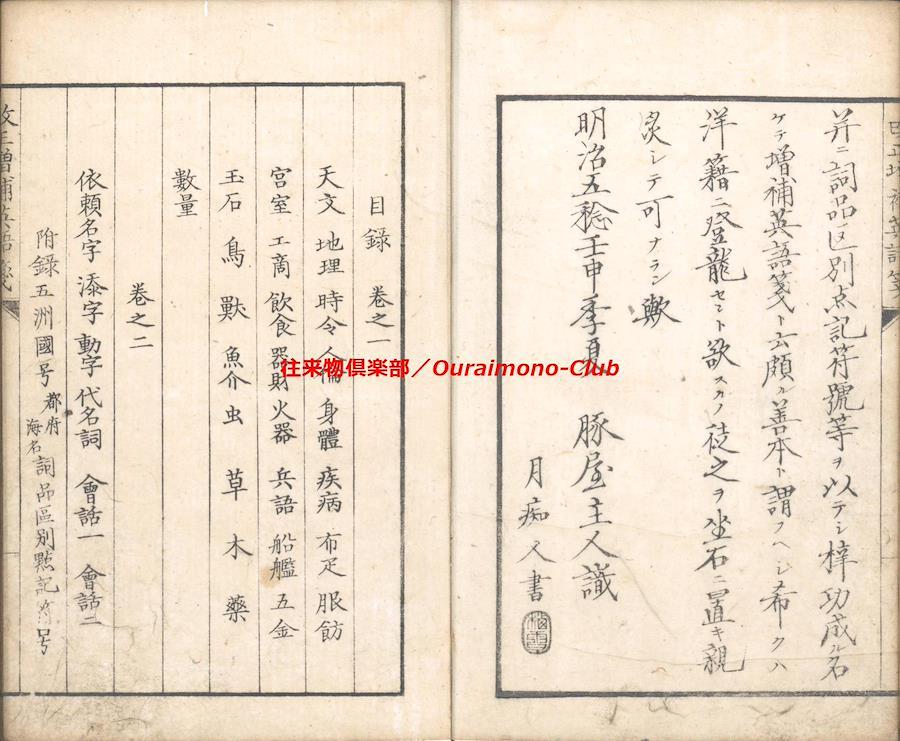 并ニ詞品区別点記符號等ヲ以テシ梓功成ル名
ケテ増補英語箋ト云頗ル善本ト謂フヘシ希クハ
洋籍ニ登龍セント欲スルノ徒之ヲ坐右ニ置キ親
炙シテ可ナラン歟
明治五稔壬申季夏 豚屋主人識
月痴人書
目録 卷之一
天文 地理 時令 人倫 身體 疾病 布疋 服飭
宮室 工商 飲食 器財 火器 兵語 船艦 五金
玉石 鳥 獸 魚介 虫 草 木 藥
數量
卷之二
依頼名字 添字 動字 代名詞 會話一 會話二
附錄五洲國号 都府 海名 詞品區別點記符号
改正增補英語箋
往来物倶楽部／Ouraimono-Club